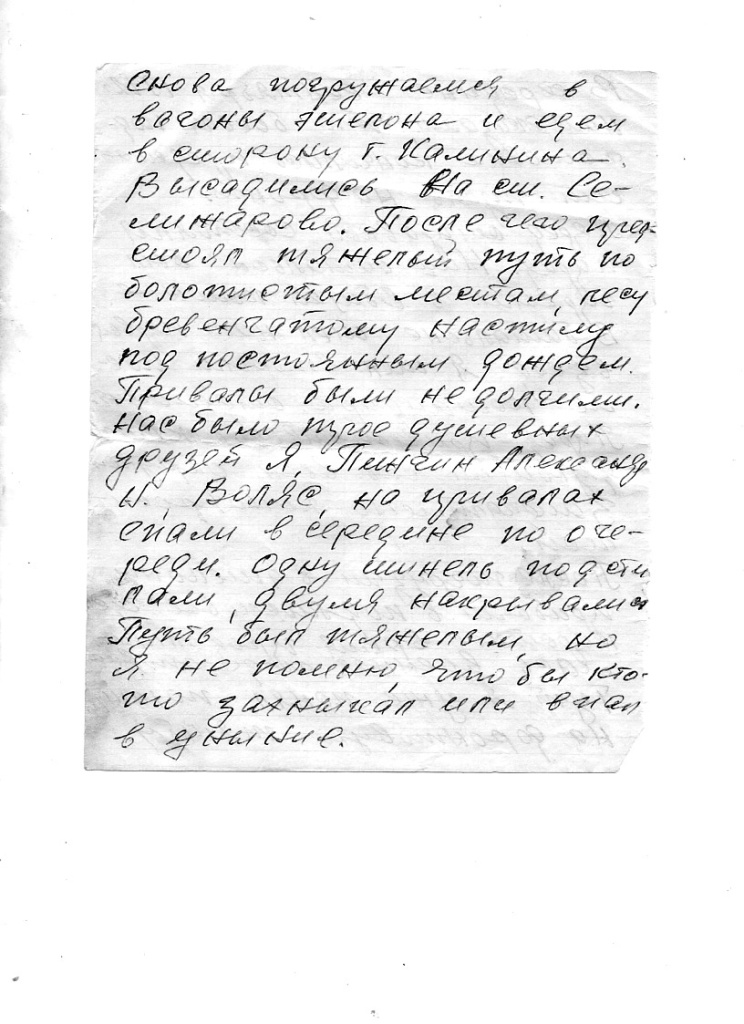 Снова погружаемся в
вагоны эшелона и едем
в сторону г. Калинина.
Высадились на ст. Се-
лижарово. После чего пред-
стоял тяжелый путь по
болотистым местам, лесу
бревенчатому настилу
под постоянным дождем.
Привалы были не долгими.
Нас было трое душевных
друзей я, Пинчин Александр
И., Воляс, на привалах
спали в середине по оче-
реди. Одну шинель подсти
лали, двумя накрывались
Путь был тяжелым, но
я не помню, что бы кто-
то захныкал или впал
в уныние.